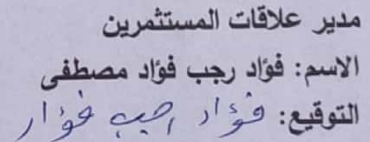 مدير علاقات المستثمرين
الاسم: فؤاد رجب فؤاد مصطفى
التوقيع: فؤاد رجب فؤاد